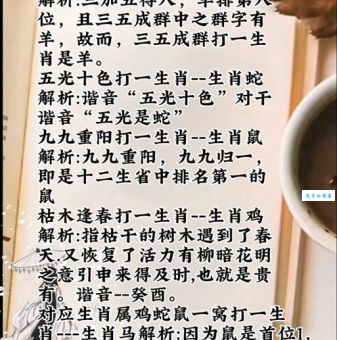 解析:三加五得八，羊排第八
位，且三五成群中之群字有
羊，故而，三五成群打一生
肖是羊。
五光十色打一生肖--生肖蛇
解析:谐音“五光十色”对干
谐音“五光是蛇”
九九重阳打一生肖--生肖鼠
解析:九九重阳，九九归一，
即是十二生省中排名第一的
鼠
枯木逢春打一生肖--生肖鸡
解析:指枯干的树木遇到了春
天.又恢复了活力有柳暗花明
之意引申来得及时,也就是贵
有。谐音--癸酉。
对应生肖属鸡蛇鼠一窝打一生
肖---生肖马解析:因为鼠是首位1,